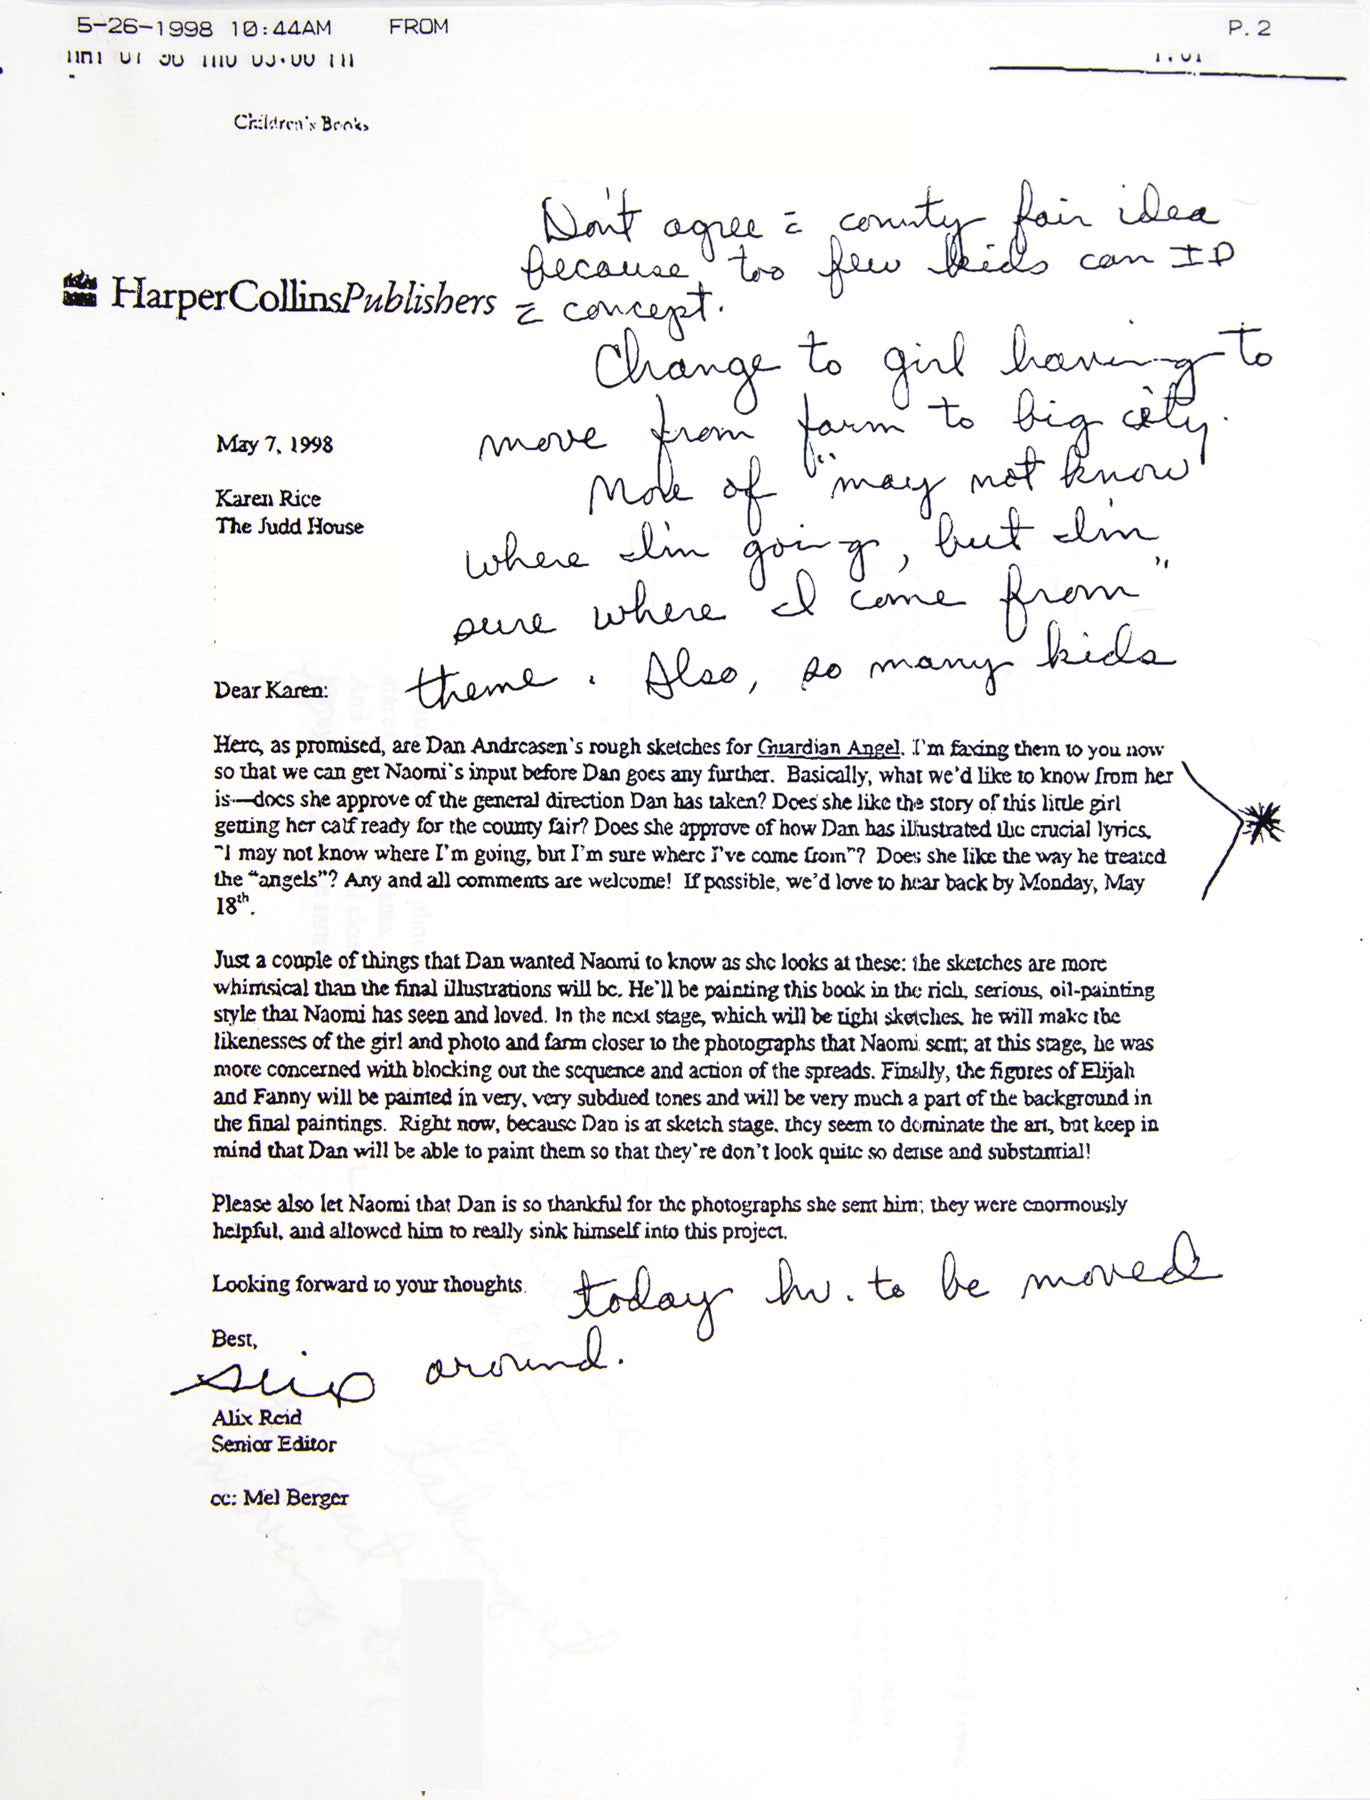 5-26-1998 10:44AM FROM P.2
Children's Books
Don't agree = county fair idea
because too few kids can ID
= concept.
HarperCollinsPublishers
Change to girl having to
move from farm to big city.
More of "may not know
where I'm going, but I'm
sure where I come from"
theme. Also, so many kids
May 7, 1998
Karen Rice
The Judd House
Dear Karen:
Here, as promised, are Dan Andreasen's rough sketches for Guardian Angel. I'm faxing them to you now
so that we can get Naomi's input before Dan goes any further. Basically, what we'd like to know from her
is—does she approve of the general direction Dan has taken? Does she like the story of this little girl
getting her calf ready for the county fair? Does she approve of how Dan has illustrated the crucial lyrics,
"I may not know where I'm going, but I'm sure where I've come from"? Does she like the way he treated
the "angels"? Any and all comments are welcome! If possible, we'd love to hear back by Monday, May
18th.
Just a couple of things that Dan wanted Naomi to know as she looks at these: the sketches are more
whimsical than the final illustrations will be. He'll be painting this book in the rich, serious, oil-painting
style that Naomi has seen and loved. In the next stage, which will be tight sketches, he will make the
likenesses of the girl and photo and farm closer to the photographs that Naomi sent; at this stage, he was
more concerned with blocking out the sequence and action of the spreads. Finally, the figures of Elijah
and Fanny will be painted in very, very subdued tones and will be very much a part of the background in
the final paintings. Right now, because Dan is at sketch stage, they seem to dominate the art, but keep in
mind that Dan will be able to paint them so that they're don't look quite so dense and substantial!
Please also let Naomi that Dan is so thankful for the photographs she sent him; they were enormously
helpful, and allowed him to really sink himself into this project.
Looking forward to your thoughts.
today hv. to be moved
around.
Best,
Alix Reid
Senior Editor
cc: Mel Berger